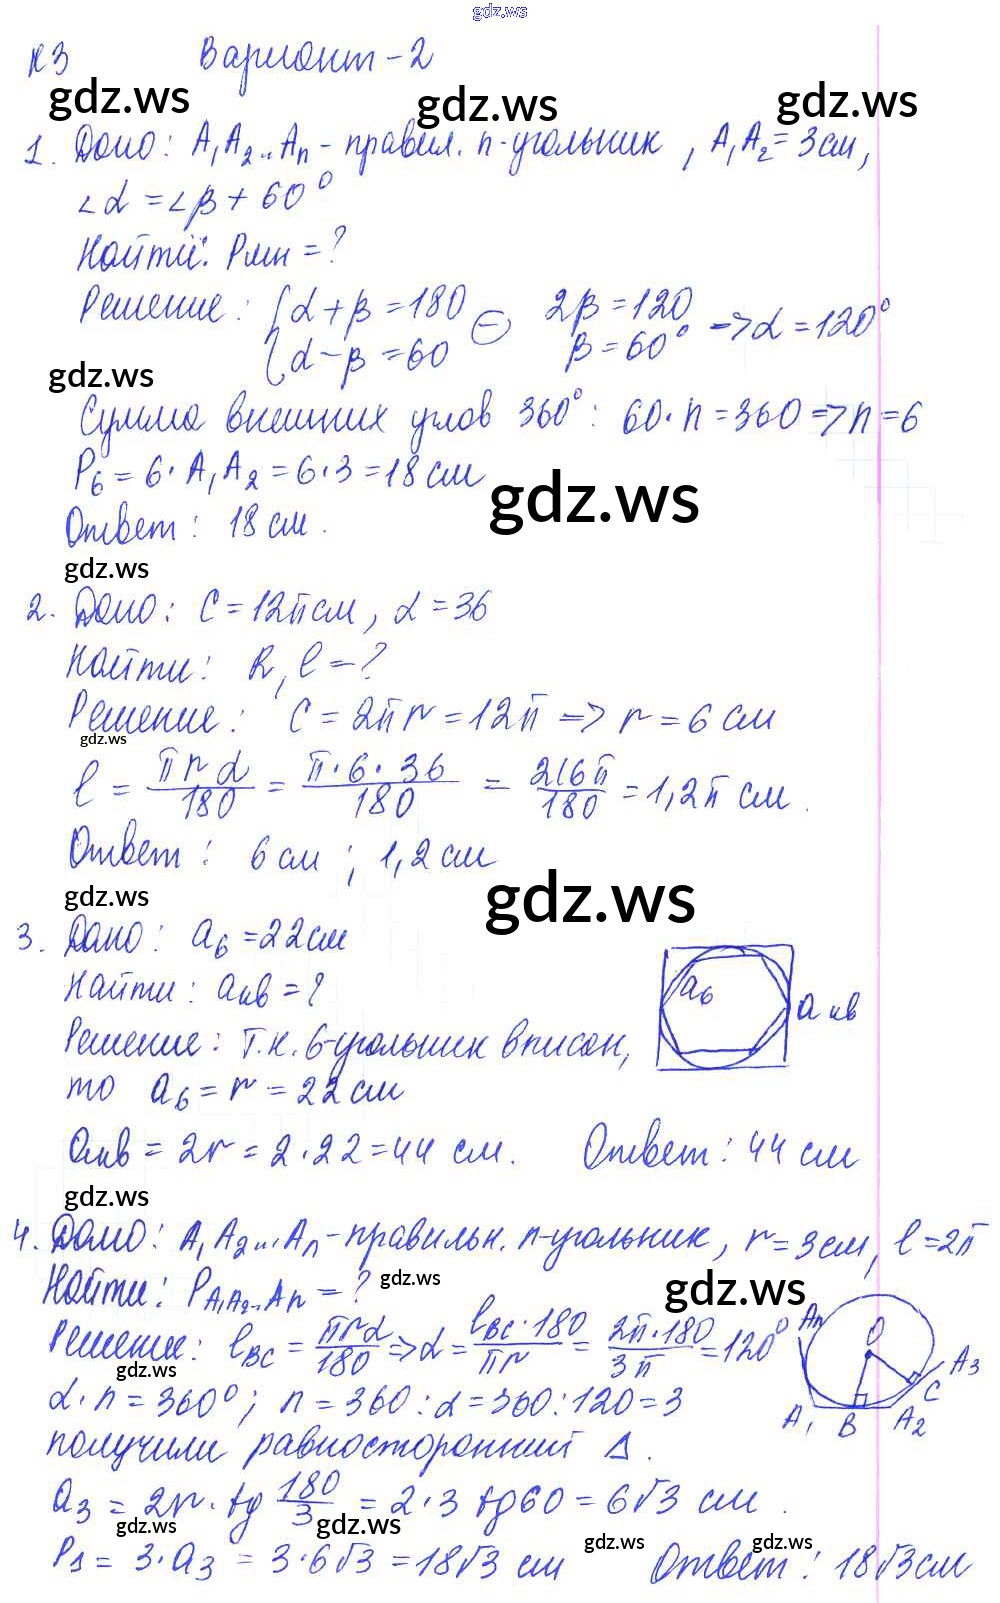 gdz.ws
К3 Вариант-2
gdz.ws gdz.ws gdz.ws
1. Дано: A₁A₂...Aₙ - правил. n-угольник, A₁A₂=3см,
∠α = ∠β + 60°
Найти: Pмн = ?
Решение: { α+β=180 2β=120
{ α-β=60 (-) β=60° => α=120°
gdz.ws
Сумма внешних углов 360°: 60·n=360 => n=6
P₆=6·A₁A₂=6·3=18см
gdz.ws
Ответ: 18см.
gdz.ws
2. Дано: C=12πсм, α=36
Найти: R, l-?
Решение: C=2πr=12π => r=6см
gdz.ws
l = πrα/180 = π·6·36/180 = 216π/180 = 1,2π см.
Ответ: 6см; 1,2см
gdz.ws gdz.ws
3. Дано: a₆=22см
Найти: aкв=?
a₆ aкв
Решение: Т.к. 6-угольник вписан,
то a₆=r=22см
aкв=2r=2·22=44 см. Ответ: 44 см
gdz.ws
4. Дано: A₁A₂...Aₙ-правильн. n-угольник, r=3см, l=2π
Найти: P A₁A₂...Aₙ=? gdz.ws gdz.ws
Решение: l BC = πrα/180 => α = l BC·180/πr = 2π·180/3π = 120°
gdz.ws
Aₙ O A₃ C A₁ B A₂
α·n=360°; n=360:α=360:120=3
получили равносторонний Δ.
a₃=2r·tg 180/3 = 2·3 tg60=6√3 см.
gdz.ws gdz.ws gdz.ws gdz.ws
P₃=3·a₃=3·6√3=18√3 см Ответ: 18√3см